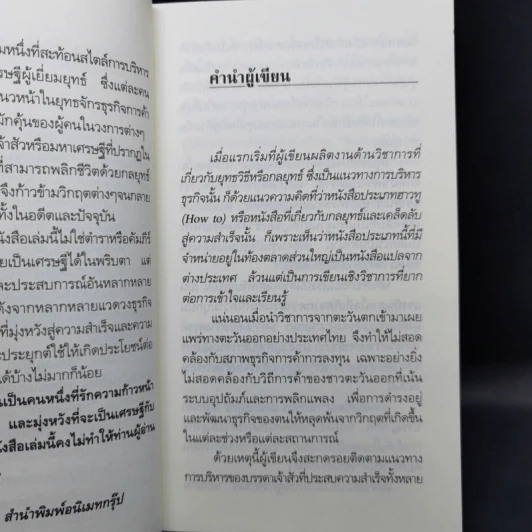 มหนึ่งที่สะท้อนสไตล์การบริหาร
รษฐีผู้เยี่ยมยุทธ์ ซึ่งแต่ละคน
นวหน้าในยุทธจักรธุรกิจการค้า
มักคุ้นของผู้คนในวงการต่างๆ
จ้าสัวหรือมหาเศรษฐีที่ปรากฏใน
ที่สามารถพลิกชีวิตด้วยกลยุทธ์
จึงก้าวข้ามวิกฤตต่างๆจนกลาย
ทั้งในอดีตและปัจจุบัน
นังสือเล่มนี้ไม่ใช่ตำราหรือคัมภีร์
ยเป็นเศรษฐีได้ในพริบตา แต่
ะประสบการณ์อันหลากหลาย
ดังจากหลากหลายแวดวงธุรกิจ
ที่มุ่งหวังสู่ความสำเร็จและความ
ประยุกต์ใช้ให้เกิดประโยชน์ต่อ
ได้บ้างไม่มากก็น้อย
เป็นคนหนึ่งที่รักความก้าวหน้า
และมุ่งหวังที่จะเป็นเศรษฐีกับ
งสือเล่มนี้คงไม่ทำให้ท่านผู้อ่าน
สำนักพิมพ์อนิเมทกรุ๊ป
คำนำผู้เขียน
เมื่อแรกเริ่มที่ผู้เขียนผลิตงานด้านวิชาการที่
เกี่ยวกับยุทธวิธีหรือกลยุทธ์ ซึ่งเป็นแนวทางการบริหาร
ธุรกิจนั้น ก็ด้วยแนวความคิดที่ว่าหนังสือประเภทฮาวทู
(How to) หรือหนังสือที่เกี่ยวกับกลยุทธ์และเคล็ดลับ
สู่ความสำเร็จนั้น ก็เพราะเห็นว่าหนังสือประเภทนี้ที่มี
จำหน่ายอยู่ในท้องตลาดส่วนใหญ่เป็นหนังสือแปลจาก
ต่างประเทศ ล้วนแต่เป็นการเขียนเชิงวิชาการที่ยาก
ต่อการเข้าใจและเรียนรู้
แน่นอนเมื่อนำวิชาการจากตะวันตกเข้ามาเผย
แพร่ทางตะวันออกอย่างประเทศไทย จึงทำให้ไม่สอด
คล้องกับสภาพธุรกิจการค้าการลงทุน เฉพาะอย่างยิ่ง
ไม่สอดคล้องกับวิถีการค้าของชาวตะวันออกที่เน้น
ระบบอุปถัมภ์และการพลิกแพลง เพื่อการดำรงอยู่
และพัฒนาธุรกิจของตนให้หลุดพ้นจากวิกฤตที่เกิดขึ้น
ในแต่ละช่วงหรือแต่ละสถานการณ์
ด้วยเหตุนี้ผู้เขียนจึงสะกดรอยติดตามแนวทาง
การบริหารของบรรดาเจ้าสัวที่ประสบความสำเร็จทั้งหลาย